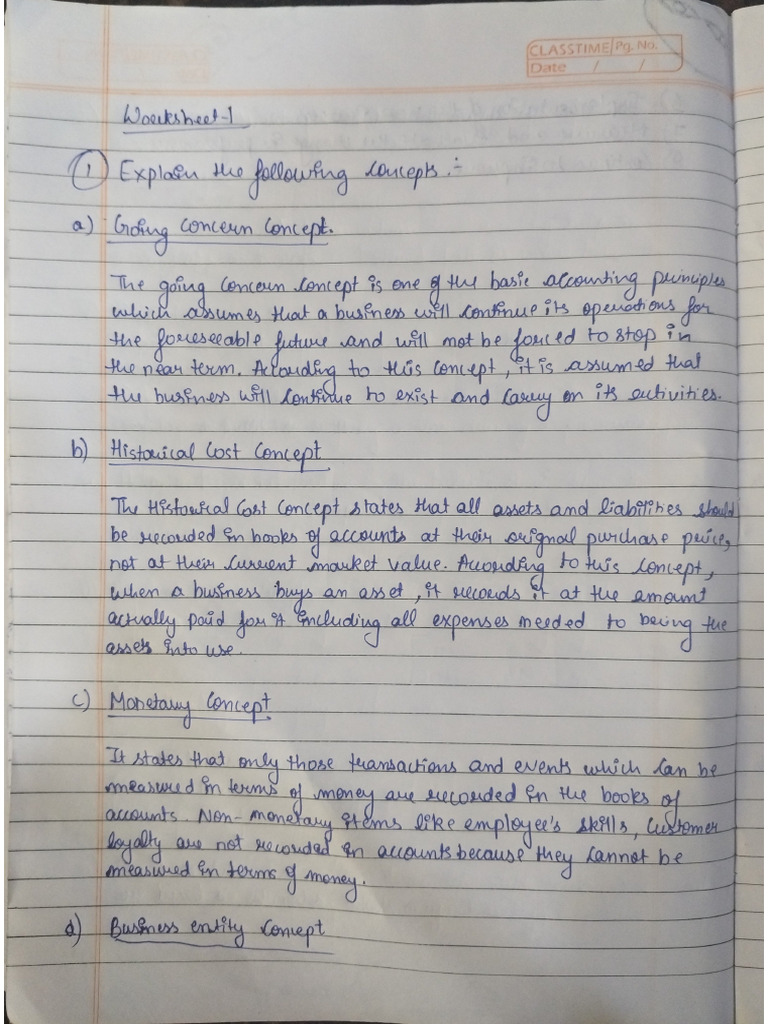 CLASSTIME Pg. No.
Date / /
Worksheet-1
① Explain the following concepts :-
a) Going Concern Concept.
The going concern concept is one of the basic accounting principles
which assumes that a business will continue its operations for
the foreseeable future and will not be forced to stop in
the near term. According to this concept, it is assumed that
the business will continue to exist and carry on its activities.
b) Historical Cost Concept
The Historical Cost Concept states that all assets and liabilities should
be recorded in books of accounts at their orignal purchase price,
not at their current market value. According to this concept,
when a business buys an asset, it records it at the amount
actually paid for it including all expenses needed to being the
assets into use.
c) Monetary Concept
It states that only those transactions and events which can be
measured in terms of money are recorded in the books of
accounts. Non-monetary items like employee's skills, customer
loyalty are not recorded in accounts because they cannot be
measured in terms of money.
d) Business entity Concept